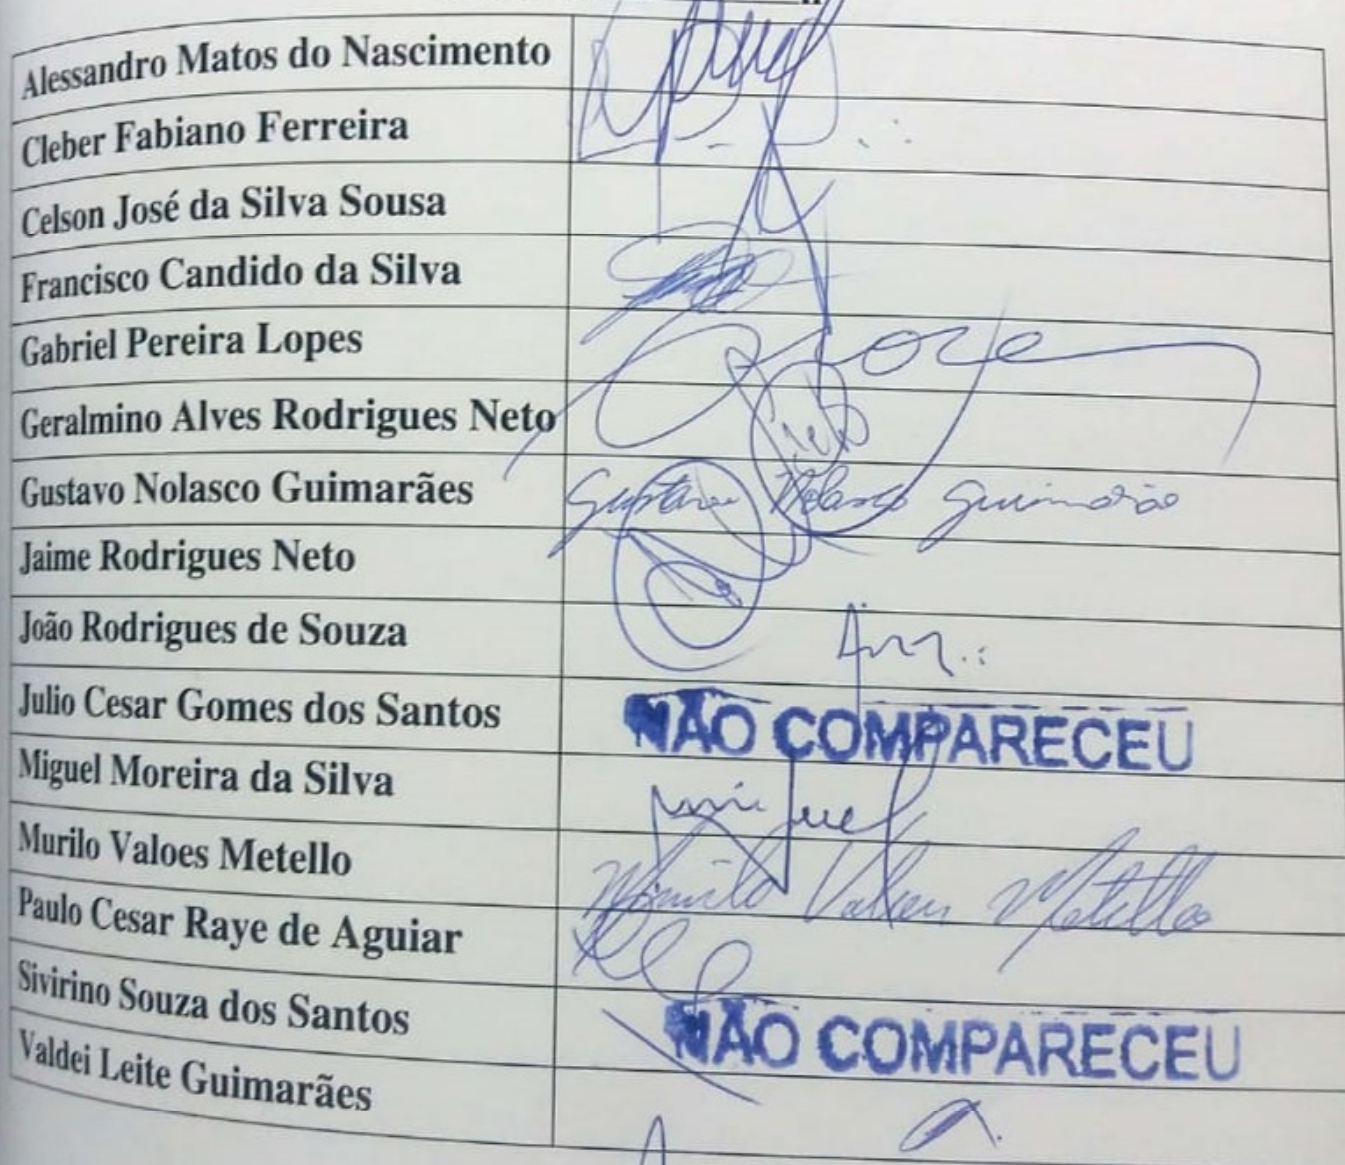 Alessandro Matos do Nascimento
Cleber Fabiano Ferreira
Celson José da Silva Sousa
Francisco Candido da Silva
Gabriel Pereira Lopes
Geralmino Alves Rodrigues Neto
Gustavo Nolasco Guimarães Gustavo Nolasco Guimarães
Jaime Rodrigues Neto
João Rodrigues de Souza
Julio Cesar Gomes dos Santos NÃO COMPARECEU
Miguel Moreira da Silva Miguel
Murilo Valoes Metello Murilo Valoes Metello
Paulo Cesar Raye de Aguiar
Sivirino Souza dos Santos NÃO COMPARECEU
Valdei Leite Guimarães